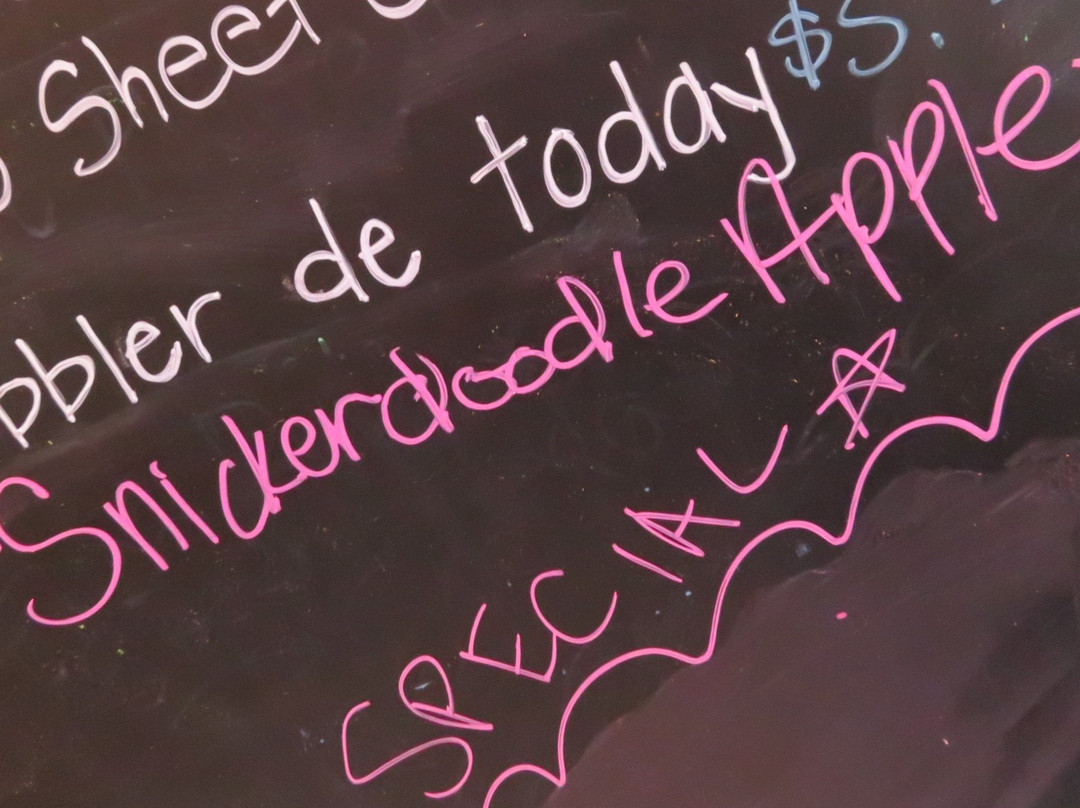 Sheet
bbler de today $5.
Snickerdoodle Apple
SPECIAL